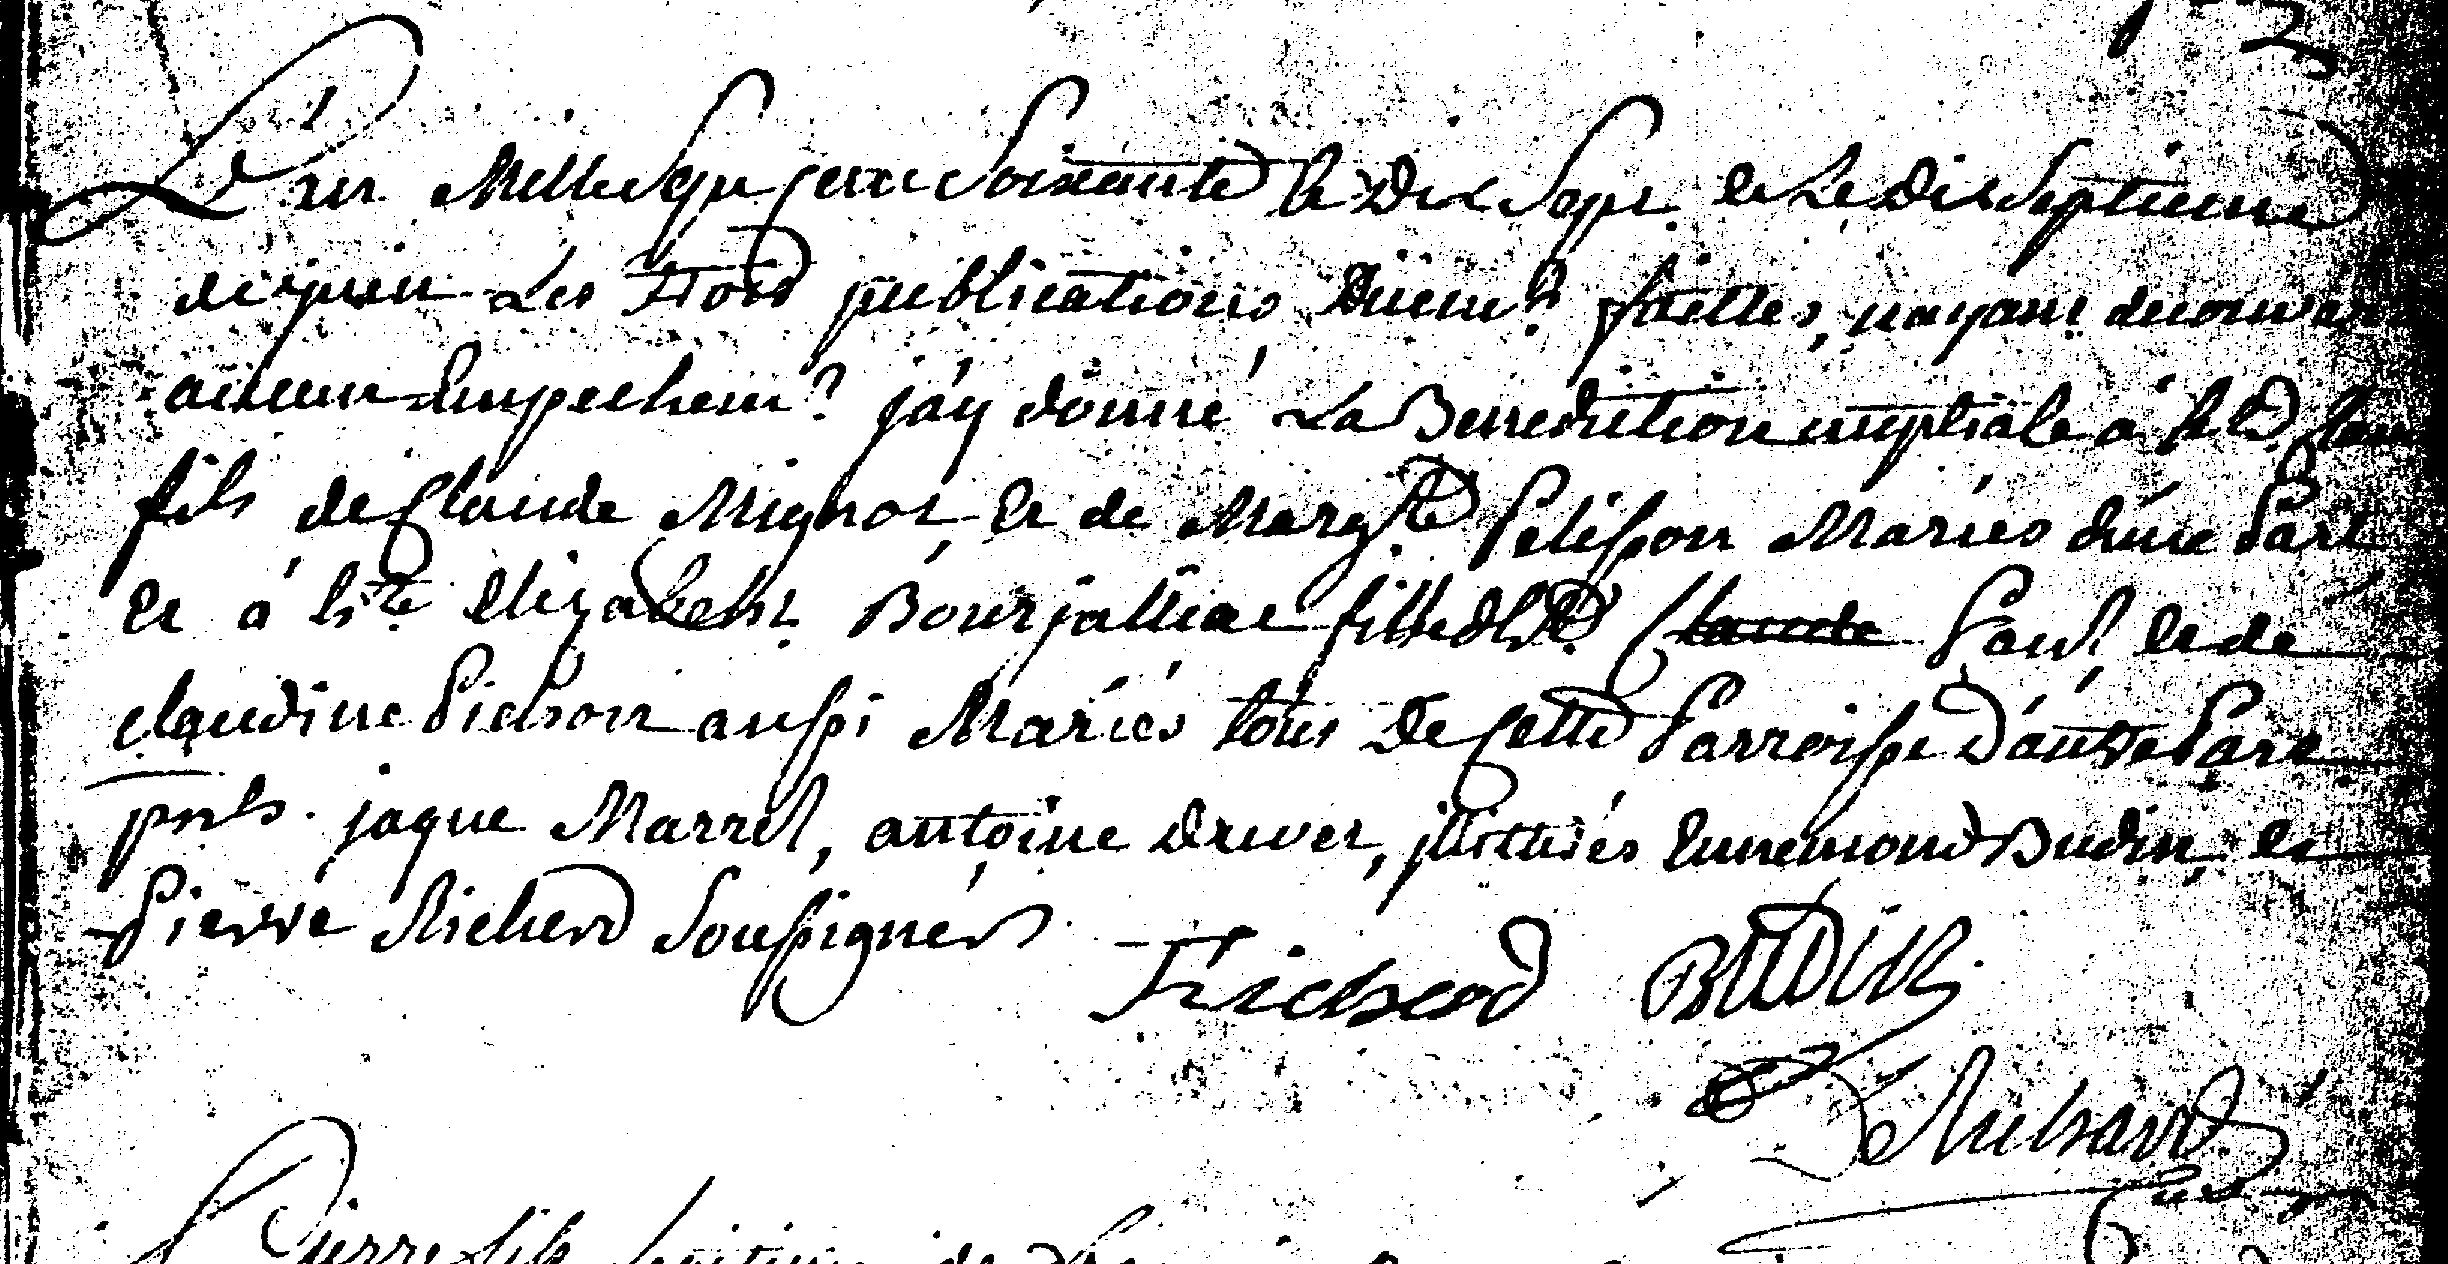 L'an Mille Sept cent Soixante le Dix Sept. et Le Dix Septieme
de juin Les Trois publications Duem.t faittes, nayant decouvert
aucun Empechem.t j'ay donné La Benediction nuptiale à
fils de Claude Mignot, et de Marg.te Pelisson Mariés d'une Part
et à h.te Elizabeth Bourjalliat fille d'h.te Claude Paul, et de
claudine Pichon aussi Mariés tous De Cette Parroisse D'autre Part
pnts. jaque Marrel, antoine Drevet, illitérés Ennemond Budin, et
Pierre Richerd Soussignés
Richerd BUDIN
Richard
Curé
Pierre fils legitime de